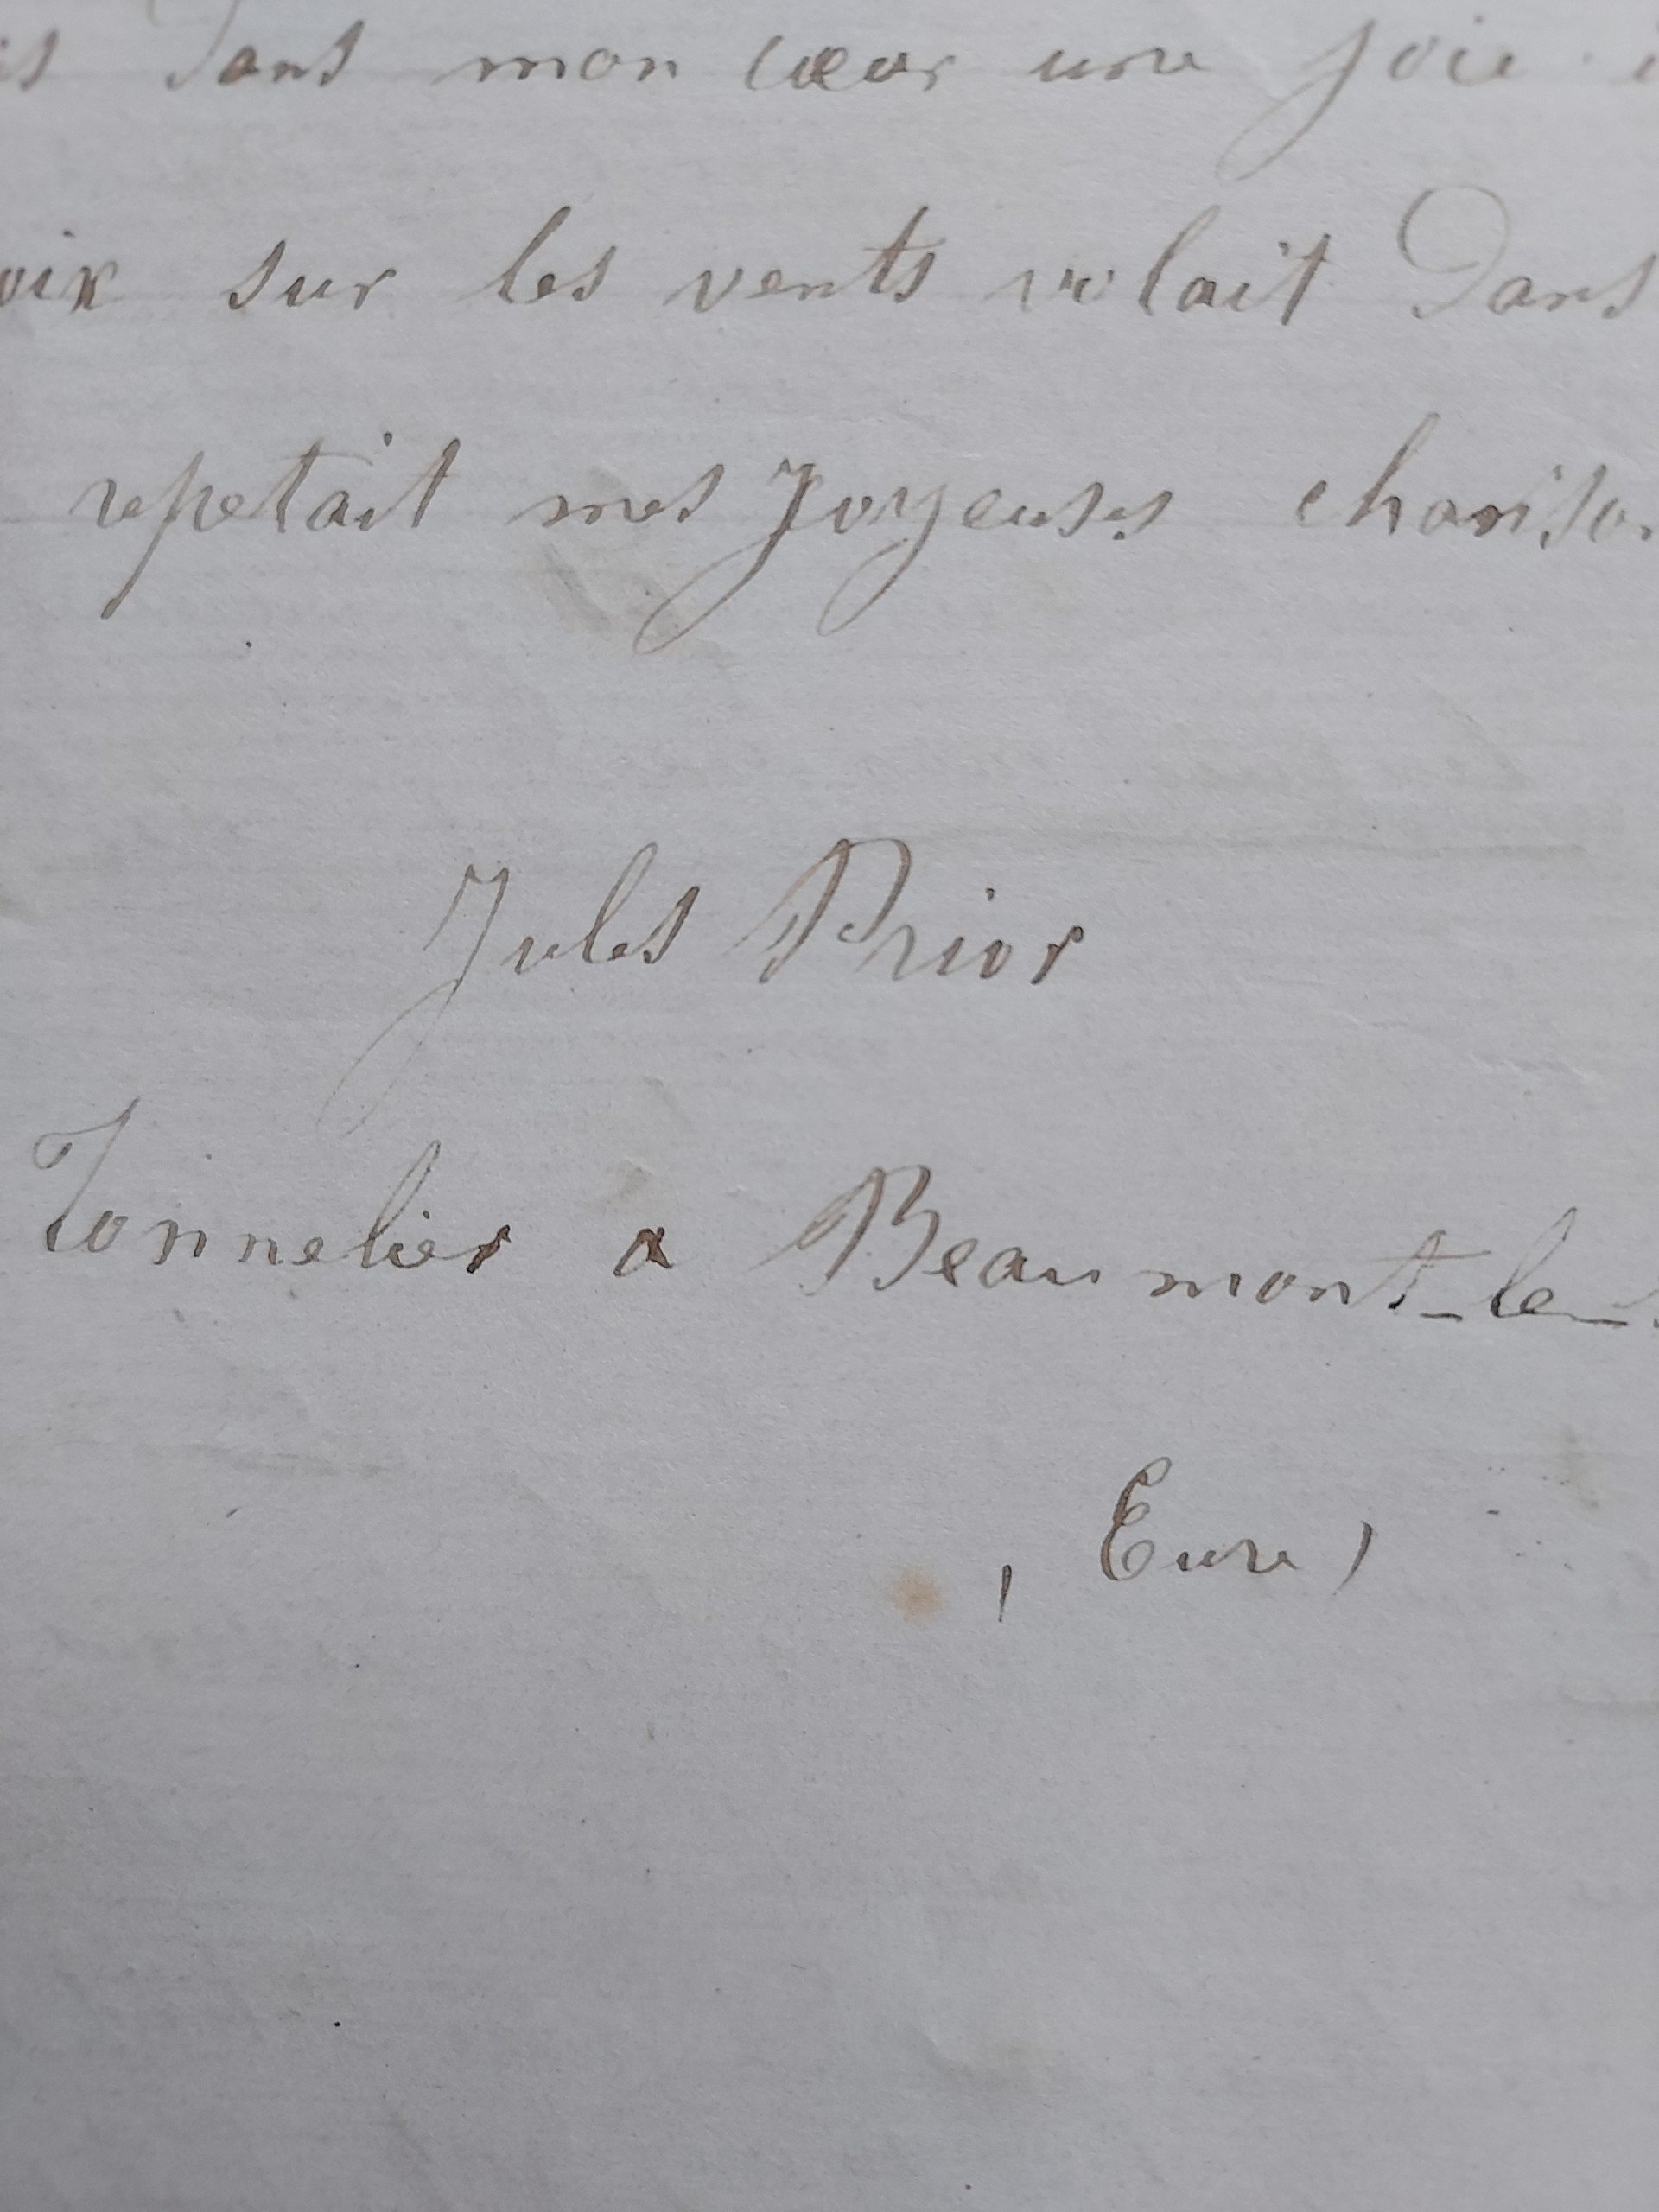 dans mon cœur une joie
oix sur les vents volait dans
repetait mes joyeuses chanso
Jules Prior
Tonnelier a Beaumont-le-
(Eure)